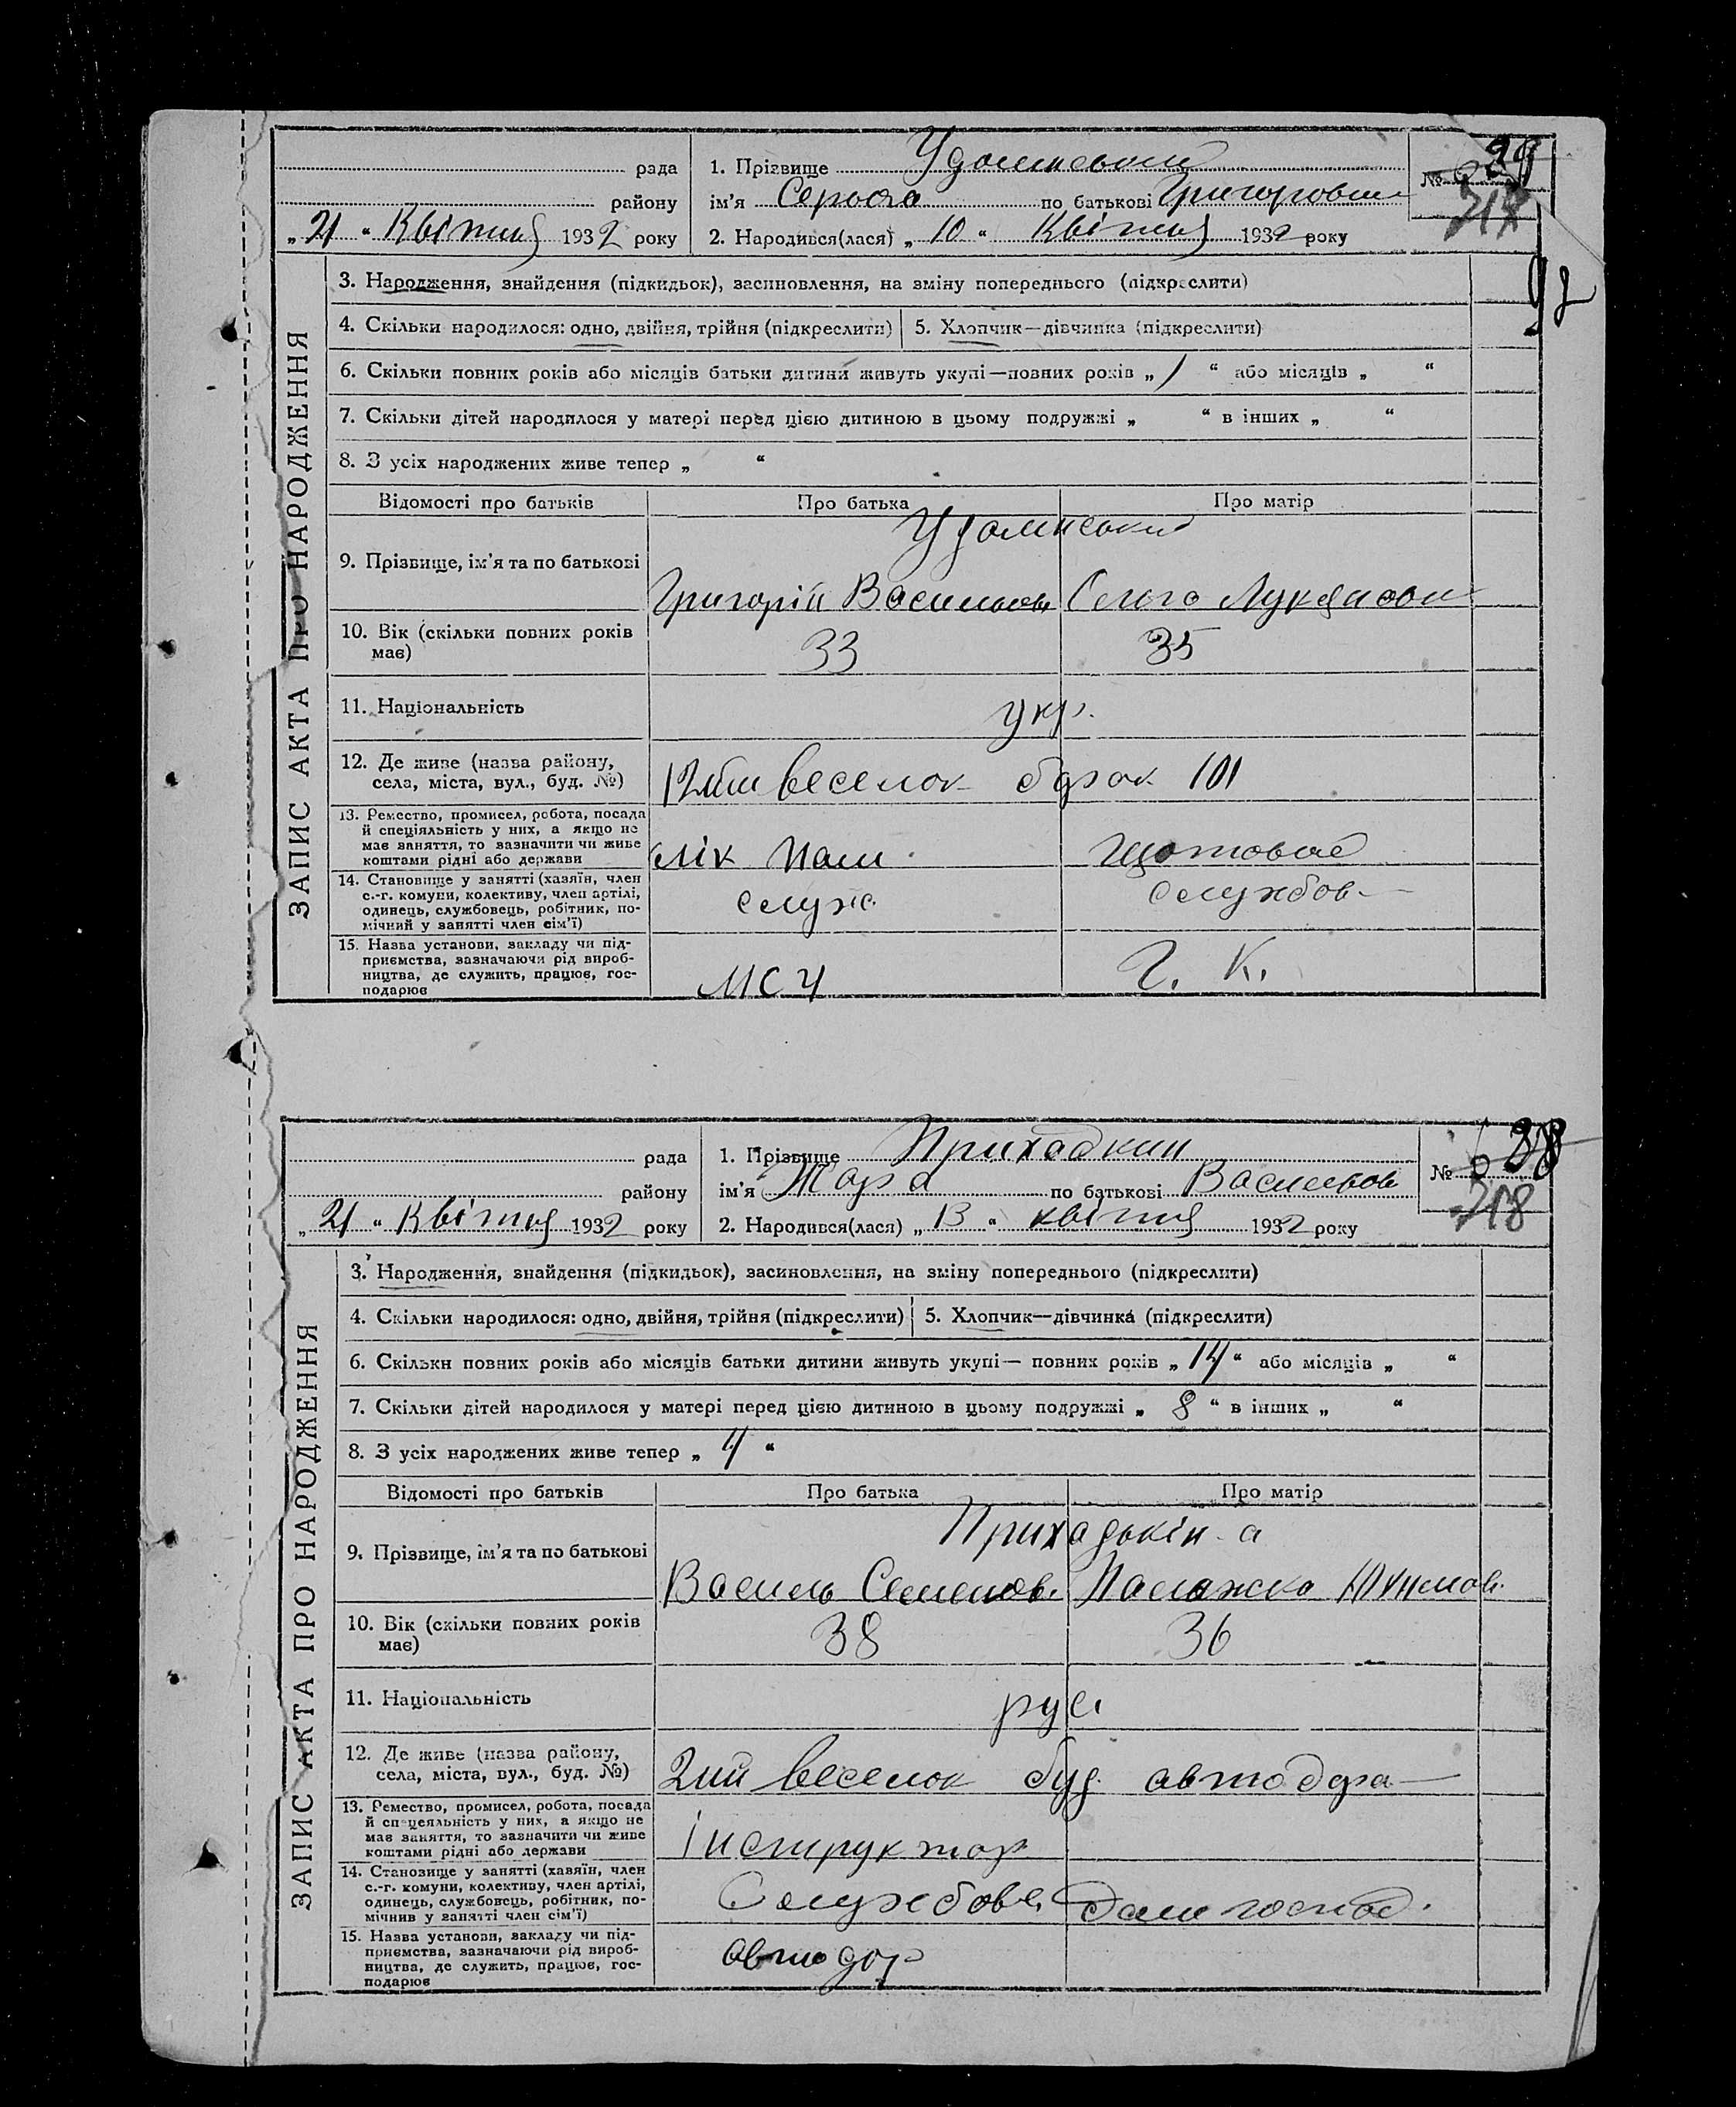 рада
району
„ 21 “ Квітня 1932 року
1. Прізвище Удомиський
ім'я Серьожа по батькові Григоровит
2. Народився(лася) „ 10 “ Квітня 1932 року
№ 39
317
ЗАПИС АКТА ПРО НАРОДЖЕННЯ
3. Народження, знайдення (підкидьок), засиновлення, на зміну попереднього (підкреслити)
4. Скільки народилося: одно, двійня, трійня (підкреслити) 5. Хлопчик—дівчинка (підкреслити)
6. Скільки повних років або місяців батьки дитини живуть укупі—повних років „ 1 “ або місяців „ “
7. Скільки дітей народилося у матері перед цією дитиною в цьому подружжі „ “ в інших „ “
8. З усіх народжених живе тепер „ “
Відомості про батьків Про батька Про матір
9. Прізвище, ім'я та по батькові
Григорій Васильов
10. Вік (скільки повних років має) 33 35
11. Національність укр.
12. Де живе (назва району, села, міста, вул., буд. №) веселок 101
13. Ремество, промисел, робота, посада
й спеціяльність у них, а якщо не
має заняття, то зазначити чи живе
коштами рідні або держави
лік Пом. Щотовод
14. Становище у занятті (хазяїн, член
с.-г. комуни, колективу, член артілі,
одинець, службовець, робітник, по-
мічний у занятті член сім'ї)
служ. службов.
15. Назва установи, закладу чи під-
приємства, зазначаючи рід вироб-
ництва, де служить, працює, гос-
подарює
МСЧ Г. К.
рада
району
„ 21 “ Квітня 1932 року
1. Прізвище Приходкин
ім'я по батькові Васильов
2. Народився(лася) „ 13 “ квітня 1932 року
№ 38
318
ЗАПИС АКТА ПРО НАРОДЖЕННЯ
3. Народження, знайдення (підкидьок), засиновлення, на зміну попереднього (підкреслити)
4. Скільки народилося: одно, двійня, трійня (підкреслити) 5. Хлопчик—дівчинка (підкреслити)
6. Скільки повних років або місяців батьки дитини живуть укупі— повних років „ 14 “ або місяців „ “
7. Скільки дітей народилося у матері перед цією дитиною в цьому подружжі „ 8 “ в інших „ “
8. З усіх народжених живе тепер „ 4 “
Відомості про батьків Про батька Про матір
Приходькін а
9. Прізвище, ім'я та по батькові
Василь Семенов. Палажка
10. Вік (скільки повних років має) 38 36
11. Національність рус.
12. Де живе (назва району, села, міста, вул., буд. №) 2ий веселок буд. автодора
13. Ремество, промисел, робота, посада
й спеціяльність у них, а якщо не
має заняття, то зазначити чи живе
коштами рідні або держави
інструктор
14. Становище у занятті (хазяїн, член
с.-г. комуни, колективу, член артілі,
одинець, службовець, робітник, по-
мічний у занятті член сім'ї)
Службов. Дом господ.
15. Назва установи, закладу чи під-
приємства, зазначаючи рід вироб-
ництва, де служить, працює, гос-
подарює
автодор